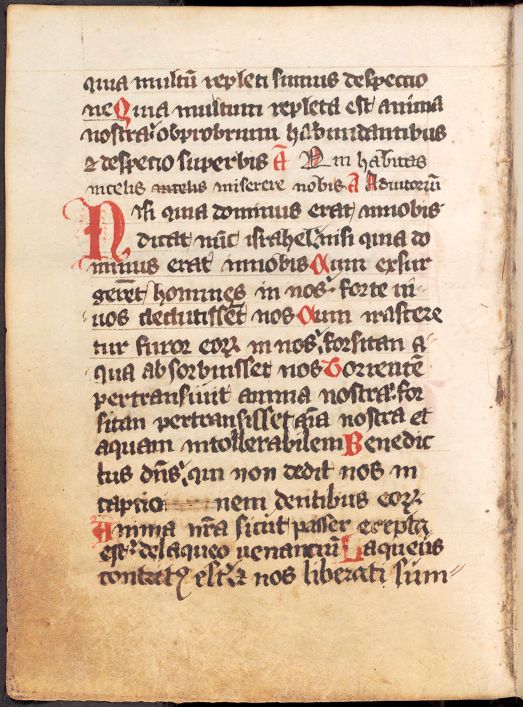 quia multū repleti sumus despectio
ne Quia multum repleta est anima
nostra obprobrium habundantibus
⁊ despectio superbis A Qui habitas
in celis in celis miserere nobis A Adiutoriū
Nisi quia dominus erat in nobis
dicat nūc israhel nisi quia do
minus erat in nobis Cum exsur
gerēt homines in nos forte ui
uos deglutissēt nos Cum irascere
tur furor eoꝝ in nos forsitan a
qua absorbuisset nos Torrentē
pertransiuit anima nostra for
sitan pertransisset aīa nostra et
aquam intollerabilem Benedic
tus dn̄s qui non dedit nos in
captio nem dentibus eoꝝ
Anima nr̄a sicut passer erepta
est de laqueo uenantiū Laqueus
contritꝰ est ⁊ nos liberati sum